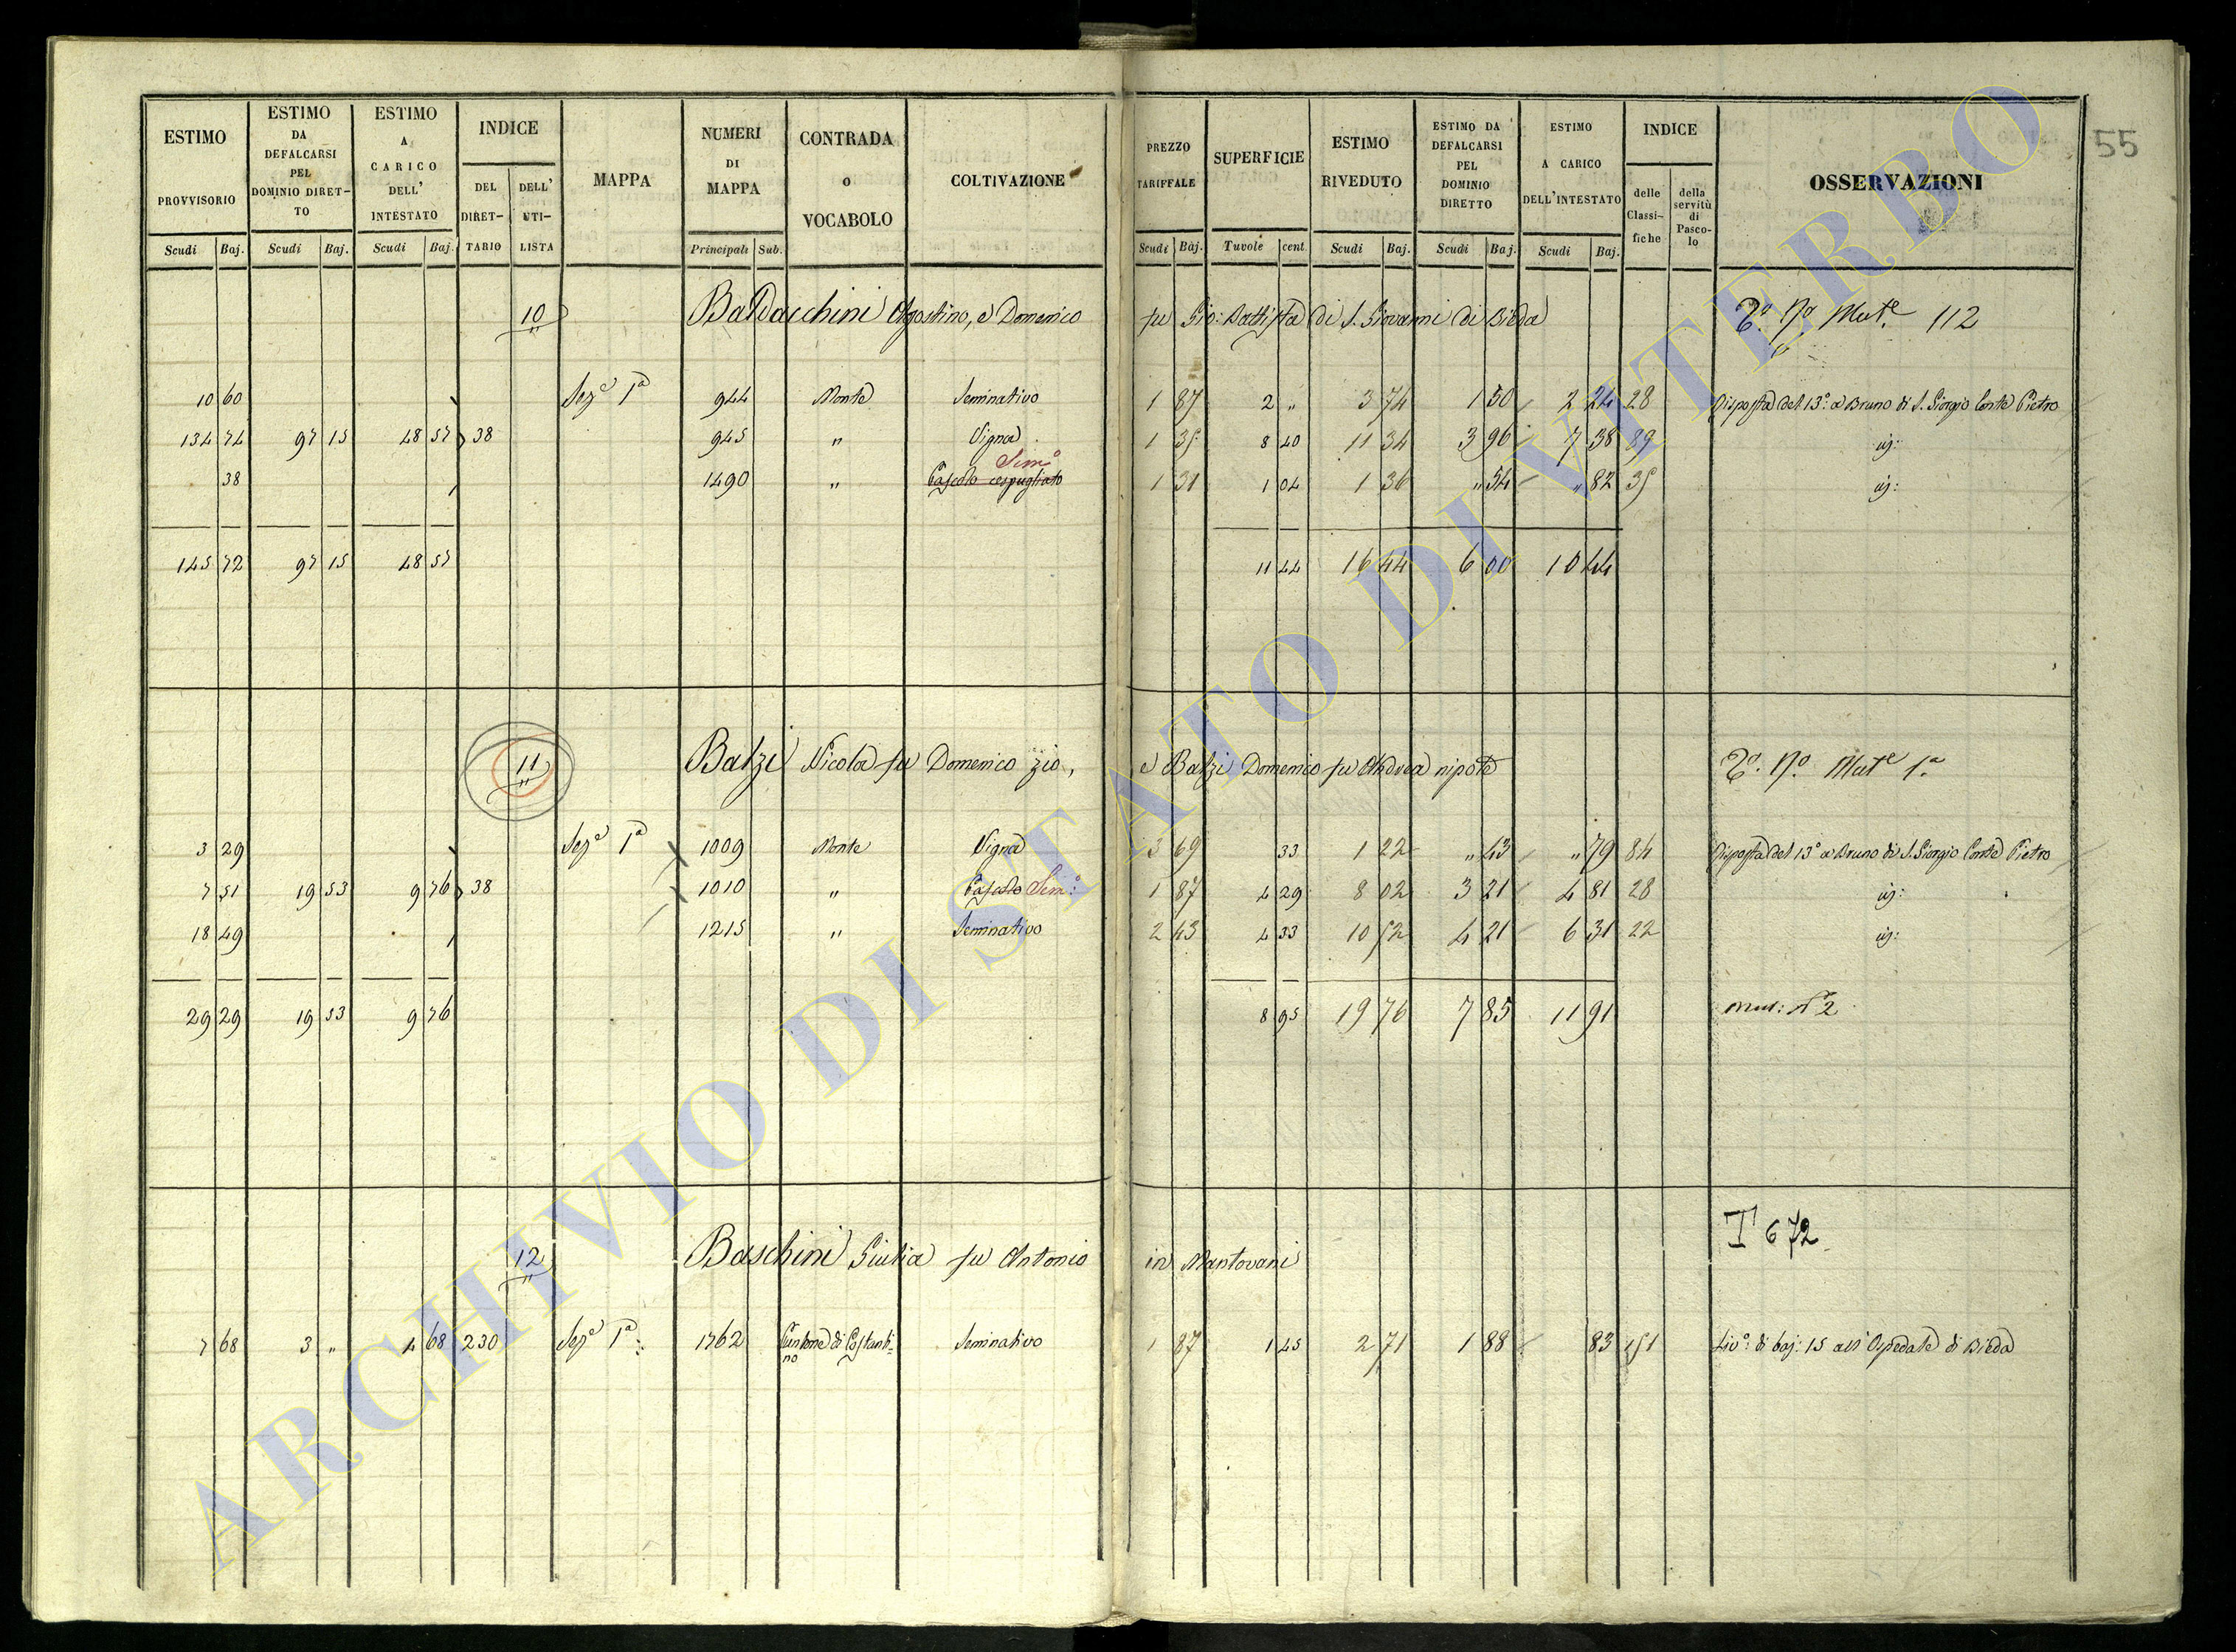 55
ESTIMO PROVVISORIO
ESTIMO DA DEFALCARSI PEL DOMINIO DIRET-TO
ESTIMO A CARICO DELL' INTESTATO
INDICE
DEL DIRET-TARIO
DELL' UTI-LISTA
MAPPA
NUMERI DI MAPPA
CONTRADA O VOCABOLO
COLTIVAZIONE
PREZZO TARIFFALE
SUPERFICIE
ESTIMO RIVEDUTO
ESTIMO DA DEFALCARSI PEL DOMINIO DIRETTO
ESTIMO A CARICO DELL'INTESTATO
INDICE
delle Classi-fiche
della servitù di Pasco-lo
OSSERVAZIONI
Scudi Baj. Scudi Baj. Scudi Baj. Principali Sub. Scudi Baj. Tavole cent Scudi Baj. Scudi Baj. Scudi Baj.
10 Baldacchini Agostino, e Domenico fu Gio: Battista di S. Giovanni di Bieda Mut.e 112
10 60 Sez.e 1a 944 Monte Seminativo 1 87 2 " 3 74 1 50 2 24 28 Risposta del 13.o a Bruno di S. Giorgio Conte Pietro
134 74 97 15 48 57 38 945 " Vigna 1 35 8 40 11 34 3 96 7 38 89 id:
Sem.o
38 1490 " Pascolo cespugliato 1 31 1 04 1 36 " 54 " 82 35 id:
145 72 97 15 48 57 11 44 16 44 6 00 10 44
11 Balzi Nicola fu Domenico zio, e Balzi Domenico fu Andrea nipote Mut.e 1.a
3 29 Sez.e 1a 1009 Monte Vigna 3 69 33 1 22 " 43 " 79 84 Risposta del 13.o a Bruno di S. Giorgio Conte Pietro
7 51 19 53 9 76 38 1010 " Pascolo Sem.o 1 87 4 29 8 02 3 21 4 81 28 id:
18 49 1215 " Seminativo 2 43 4 33 10 52 4 21 6 31 22 id:
29 29 19 53 9 76 8 95 19 76 7 85 11 91 mut: N.o 2
T 672
12 Baschini Giulia fu Antonio in Mantovani
7 68 3 " 4 68 230 Sez.e 1a: 1762 Cantone di Costanti=no Seminativo 1 87 1 45 2 71 1 88 83 151 Liv.o di baj: 15 all'Ospedale di Bieda
ARCHIVIO DI STATO DI VITERBO